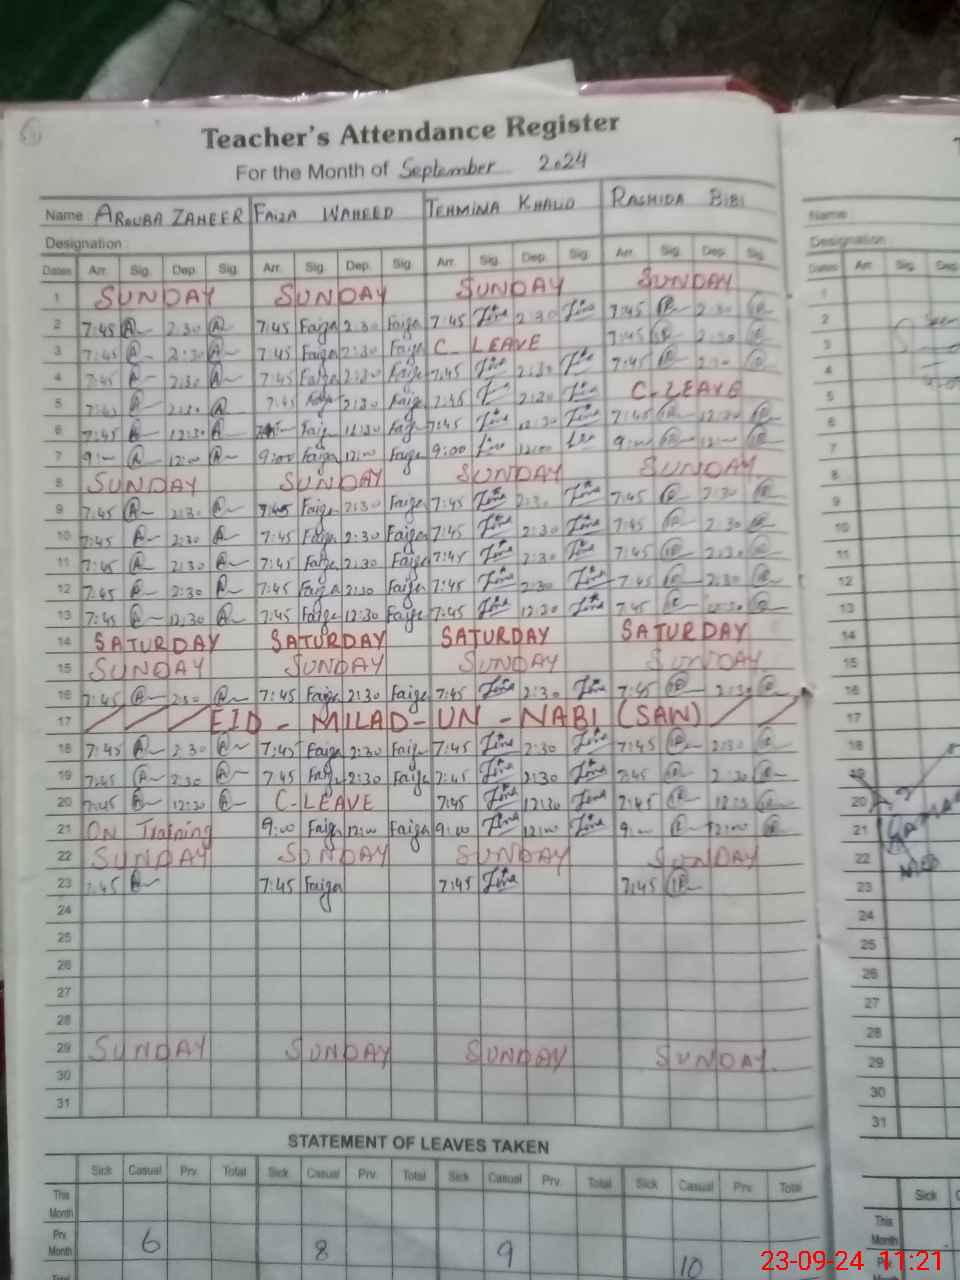 Teacher's Attendance Register
For the Month of September 2024
Name: AROUBA ZAHEER FAIZA WAHEED TEHMINA KHALID RASHIDA BIBI
Designation:
Dates Arr. Sig. Dep. Sig. Arr. Sig. Dep. Sig. Arr. Sig. Dep. Sig. Arr. Sig. Dep. Sig.
1 SUNDAY SUNDAY SUNDAY SUNDAY
2 7:45 2:30 7:45 Faiza 2:30 Faiza 7:45 2:30 7:45 2:30
3 7:45 2:30 7:45 Faiza 2:30 Faiza C. LEAVE 7:45 2:30
4 7:45 2:30 7:45 Faiza 2:30 Faiza 7:45 2:30 7:45 2:30
5 7:45 2:30 7:45 Faiza 2:30 Faiza 7:45 2:30 C-LEAVE
6 7:45 12:30 Faiza 12:30 Faiza 7:45 12:30 7:45 12:30
7 9:00 12:00 9:00 Faiza 12:00 Faiza 9:00 12:00 9:00 12:00
8 SUNDAY SUNDAY SUNDAY SUNDAY
9 7:45 2:30 7:45 Faiza 2:30 Faiza 7:45 2:30 7:45 2:30
10 7:45 2:30 7:45 Faiza 2:30 Faiza 7:45 2:30 7:45 2:30
11 7:45 2:30 7:45 Faiza 2:30 Faiza 7:45 2:30 7:45 2:30
12 7:45 2:30 7:45 Faiza 2:30 Faiza 7:45 2:30 7:45 2:30
13 7:45 12:30 7:45 Faiza 12:30 Faiza 7:45 12:30 7:45 12:30
14 SATURDAY SATURDAY SATURDAY SATURDAY
15 SUNDAY SUNDAY SUNDAY SUNDAY
16 7:45 2:30 7:45 Faiza 2:30 Faiza 7:45 2:30 7:45 2:30
17 EID - MILAD-UN - NABI (SAW)
18 7:45 2:30 7:45 Faiza 2:30 Faiza 7:45 2:30 7:45 2:30
19 7:45 2:30 7:45 Faiza 2:30 Faiza 7:45 2:30 7:45 2:30
20 7:45 12:30 C-LEAVE 7:45 12:30 7:45
21 ON Training 9:00 Faiza 12:00 Faiza 9:00 12:00 9:00 12:00
22 SUNDAY SUNDAY SUNDAY SUNDAY
23 7:45 7:45 Faiza 7:45 7:45
24
25
26
27
28
29 SUNDAY SUNDAY SUNDAY SUNDAY
30
31
STATEMENT OF LEAVES TAKEN
Sick Casual Prv. Total Sick Casual Prv. Total Sick Casual Prv. Total Sick Casual Prv. Total
This Month
Prv. Month 6 8 9 10
Total
Name
Designation
Dates Arr. Sig. Dep.
1
2
3
4
5
6
7
8
9
10
11
12
13
14
15
16
17
18
19
20
21
22
23
24
25
26
27
28
29
30
31
Sick
This Month
Prv. Month
23-09-24 11:21